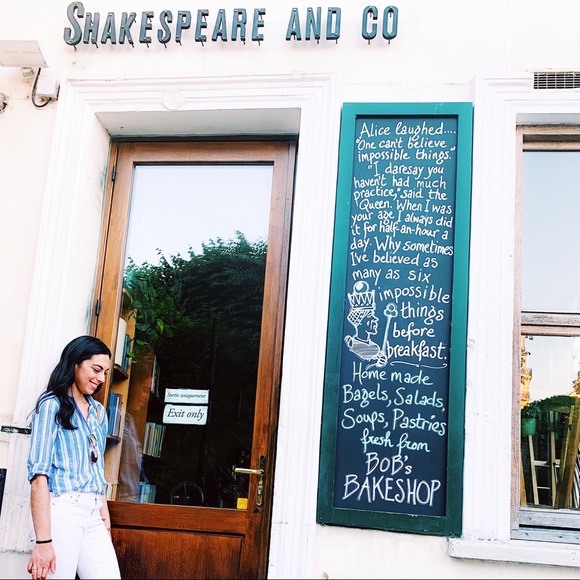 SHAKESPEARE AND CO
Alice laughed....
"One can't believe
impossible things."
"I daresay you
haven't had much
practice," said the
Queen. When I was
your age I always did
it for half-an-hour a
day. Why sometimes
I've believed as
many as six
impossible
things
before
breakfast.
Home made
Bagels, Salads,
Soups, Pastries
fresh from
BOB's
BAKESHOP
Sortie uniquement
Exit only